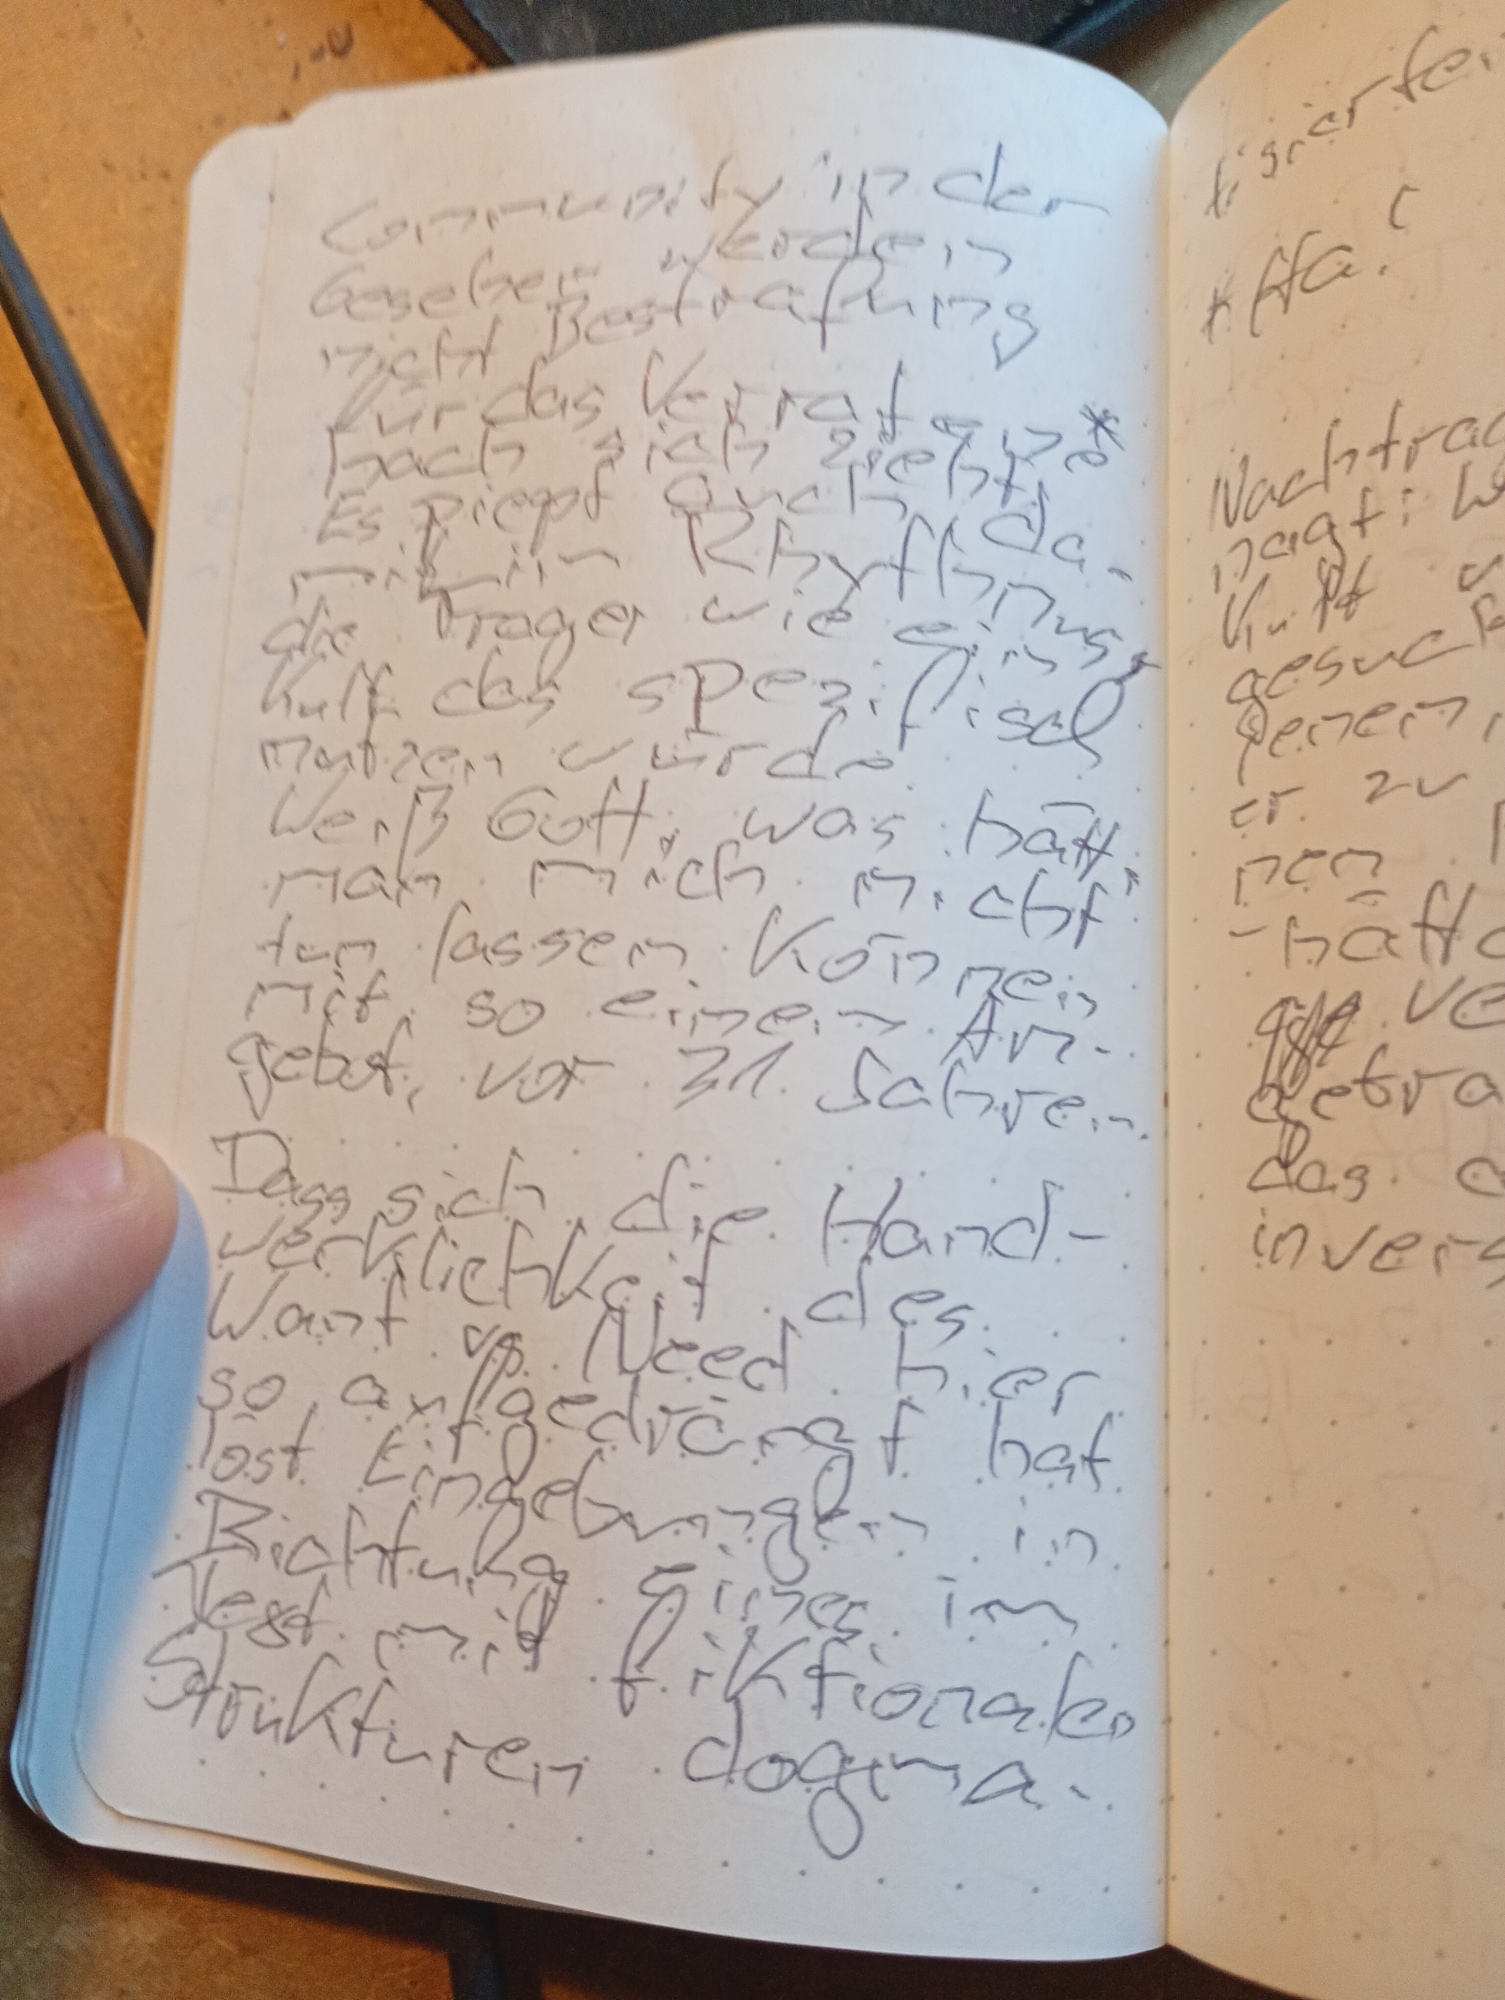 Community in der
Gesehen werden
nicht Bestrafung
für das Verraten*
nach sich zieht.
Es piept auch da-
mit im Rhythmus,
die Träger wie eins
Kult das spezifisch
nutzen würde.
Weiß Gott, was hätt'
man mich nicht
tun lassen können
mit so einem An-
gebot, vor 31 Jahren.
Dass sich die Hand-
werklichkeit des
Want vs. Need hier
so aufgedrängt hat
löst Eingebungen in
Richtung eines im
Text mit fiktionalen
Strukturen dogma-
tisierten
* Ha!
Nachtrag
nagt: W
Kult
gesucht
jenem
er zu
nen
-hätte
ve
getra
das
invers